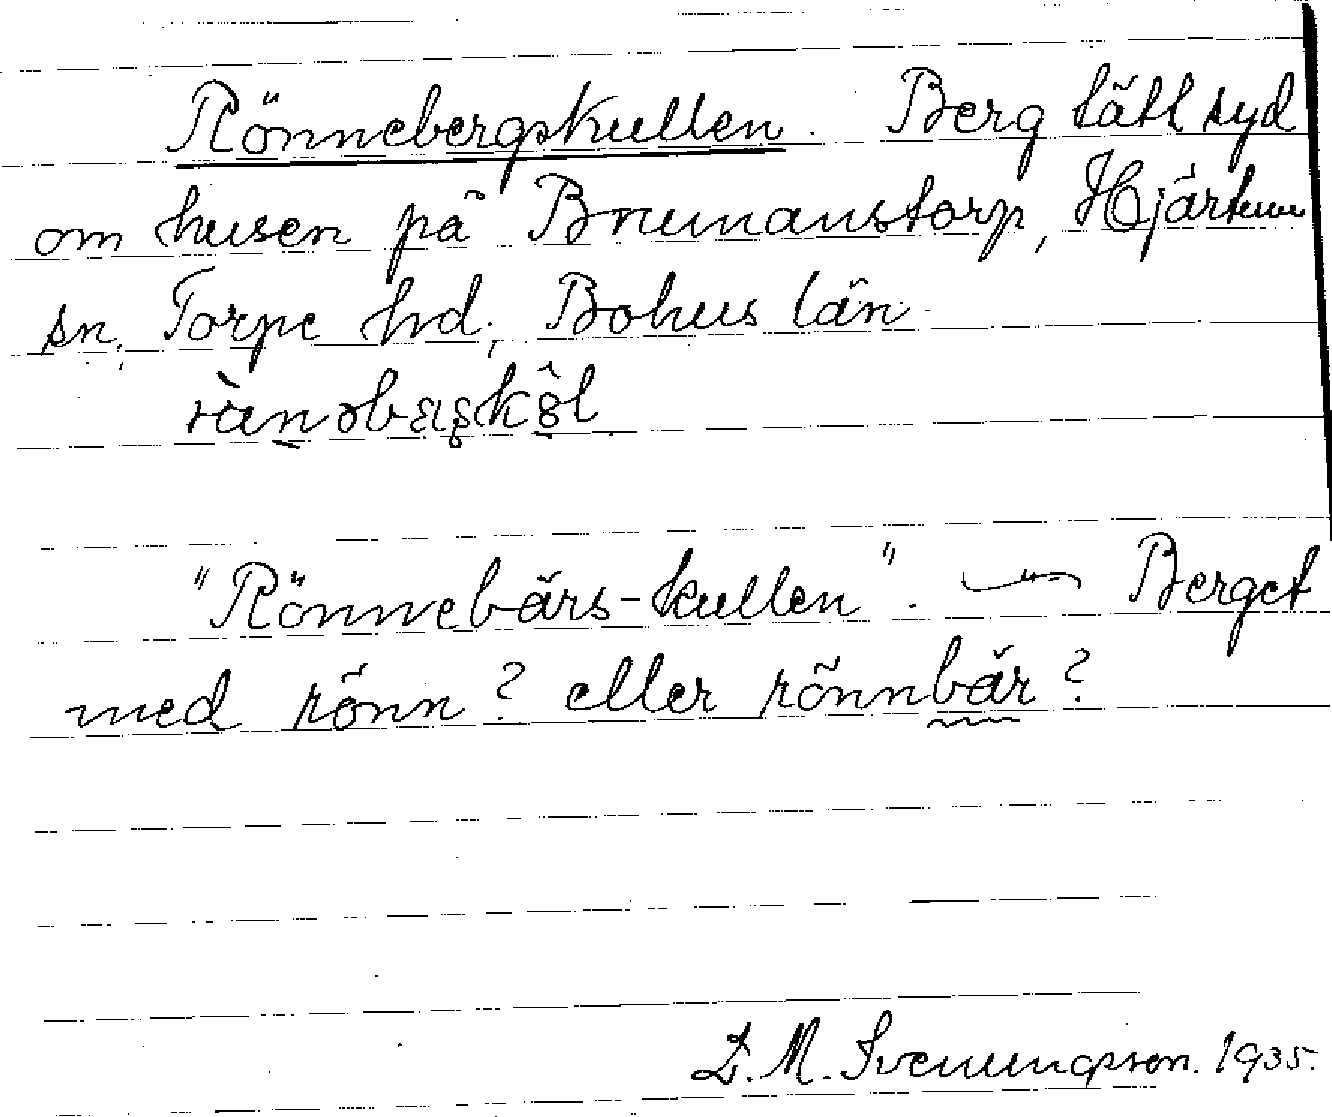 Rönnebergskullen. Berg tätt syd
om husen på Brumanstorp, Hjärtum
sn, Torpe hd, Bohus län
"Rönnebärs-kullen". — Berget
med rönn? eller rönnbär?
M. Svenungsson. 1935.